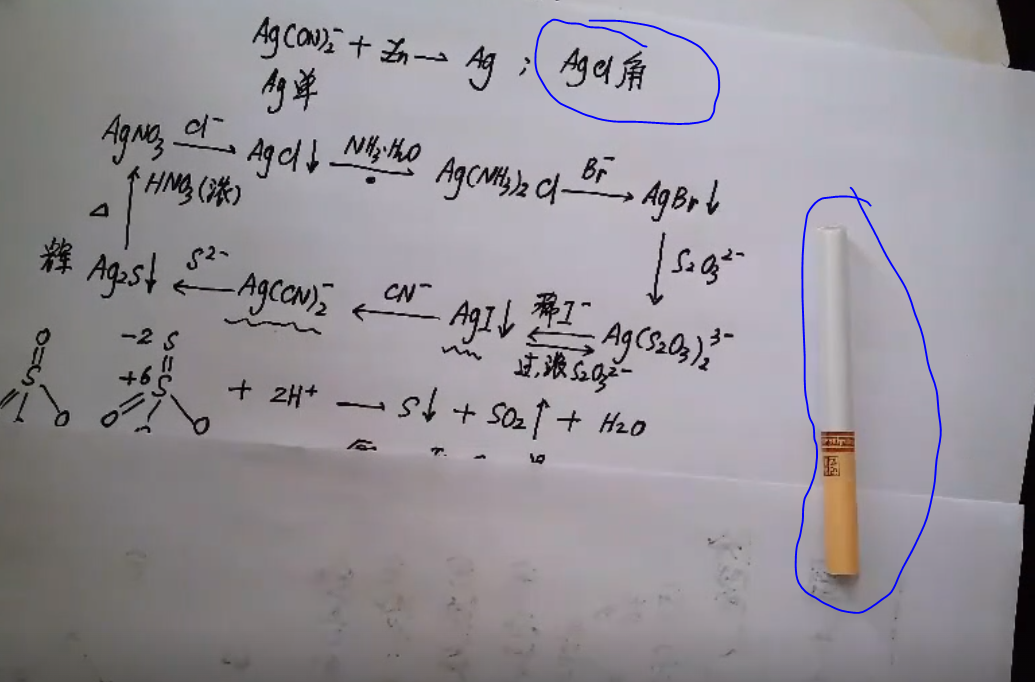 Ag(CN)₂⁻ + Zn → Ag ; AgCl角
Ag单
AgNO₃ —Cl⁻→ AgCl↓ —NH₃·H₂O→ Ag(NH₃)₂Cl —Br⁻→ AgBr↓
△ ↑ HNO₃(浓)
↓ S₂O₃²⁻
辉 Ag₂S↓ ←S²⁻— Ag(CN)₂⁻ ←CN⁻— AgI↓ 稀I⁻ ⇌ 过,浓S₂O₃²⁻ Ag(S₂O₃)₂³⁻
O S O
-2 S +6 S O O + 2H⁺ → S↓ + SO₂↑ + H₂O